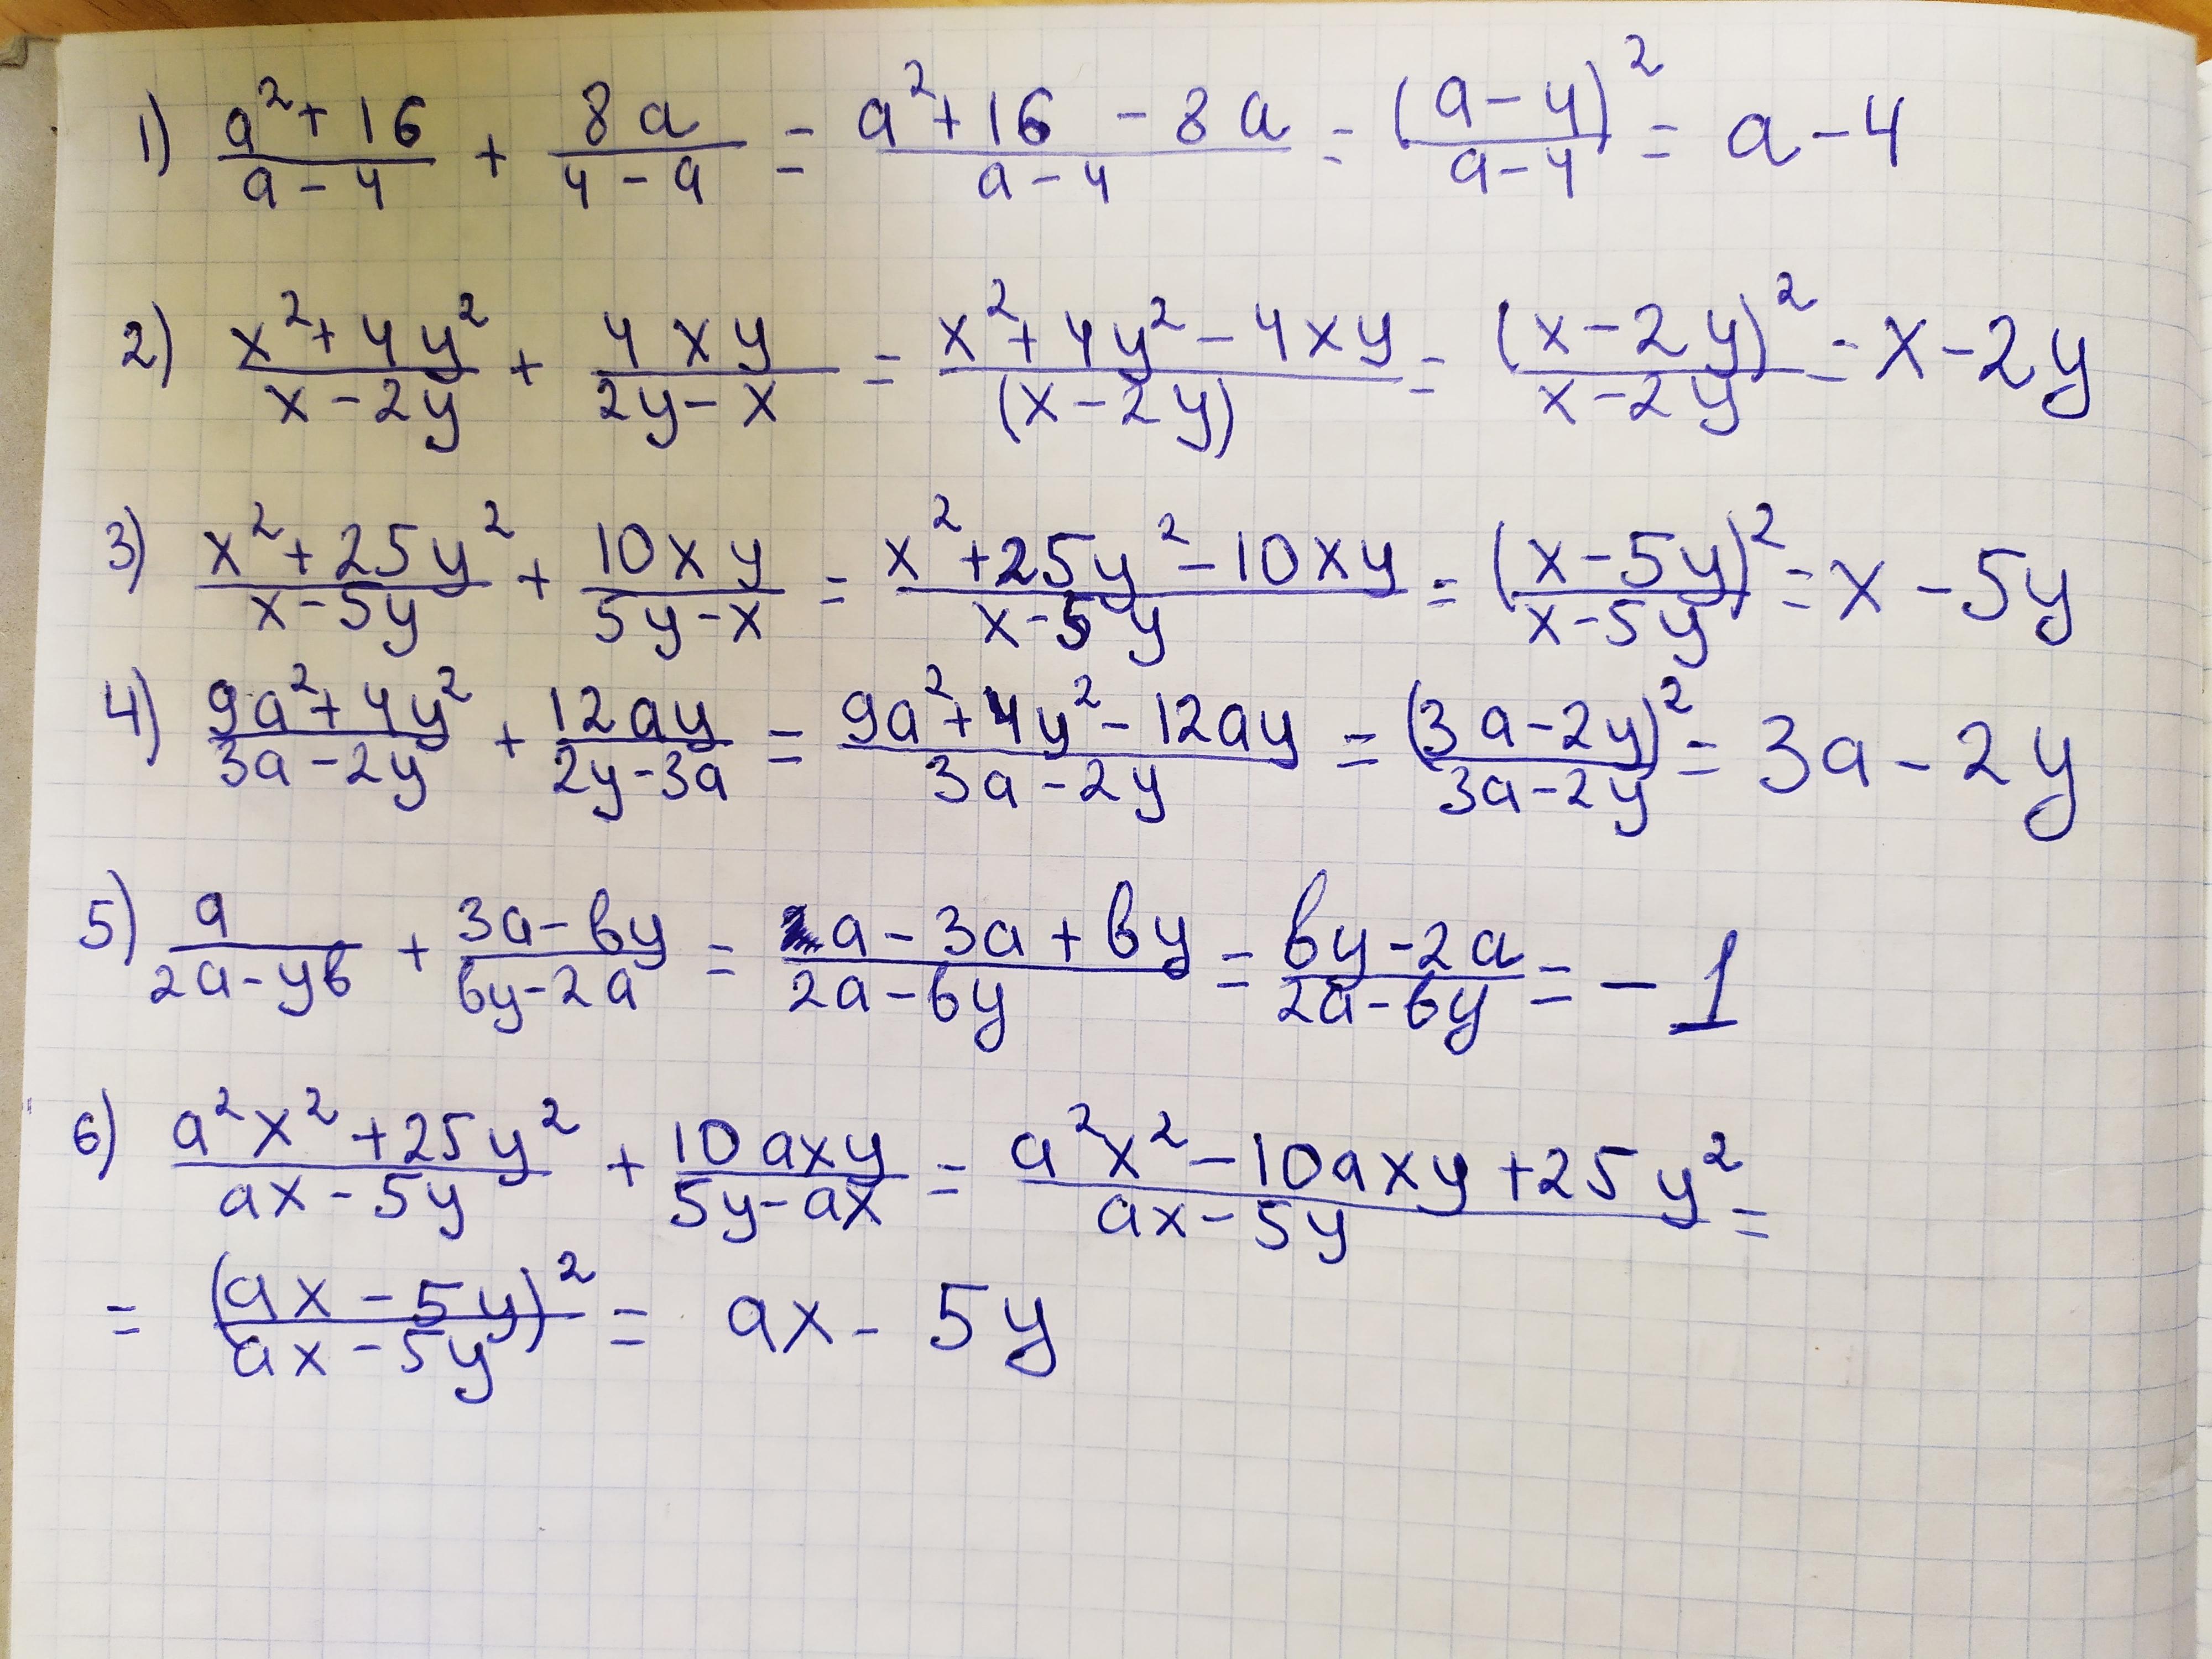 1) (a²+16)/(a-4) + 8a/(4-a) = (a²+16-8a)/(a-4) = (a-4)²/(a-4) = a-4
2) (x²+4y²)/(x-2y) + 4xy/(2y-x) = (x²+4y²-4xy)/(x-2y) = (x-2y)²/(x-2y) = x-2y
3) (x²+25y²)/(x-5y) + 10xy/(5y-x) = (x²+25y²-10xy)/(x-5y) = (x-5y)²/(x-5y) = x-5y
4) (9a²+4y²)/(3a-2y) + 12ay/(2y-3a) = (9a²+4y²-12ay)/(3a-2y) = (3a-2y)²/(3a-2y) = 3a-2y
5) a/(2a-yb) + (3a-by)/(by-2a) = (a-3a+by)/(2a-by) = (by-2a)/(2a-by) = -1
6) (a²x²+25y²)/(ax-5y) + 10axy/(5y-ax) = (a²x²-10axy+25y²)/(ax-5y) =
= (ax-5y)²/(ax-5y) = ax-5y